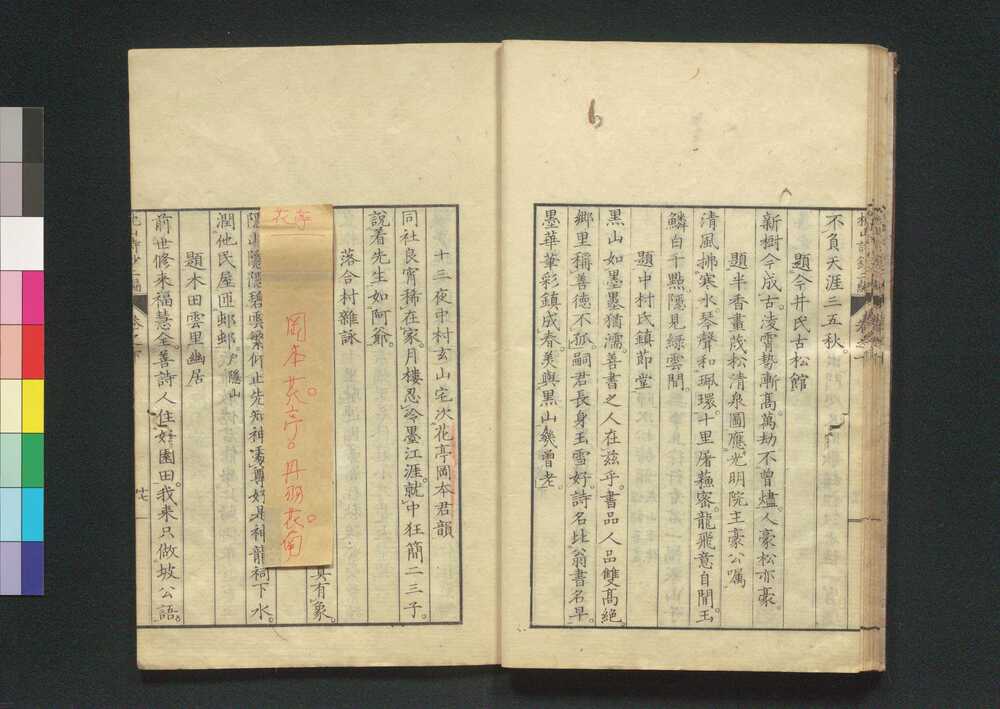 不負天涯三五秋
題今井氏古松館
新樹今成古。凌霄勢漸高。萬劫不曾燼。人豪松亦豪
題半香畫茂松清泉圖應光明院主豪公囑
清風拂寒水。琴聲和珮環。十里屠蘓密。龍飛意自閒。玉
鱗白千點。隱見綠雲間。
題中村氏鎮節堂
黑山如墨墨猶濡。善書之人在茲乎。書品人品雙高絕。
鄉里稱善德不孤。嗣君長身玉雪好。詩名比翁書名早。
墨華華彩鎮成春。美與黑山幾曾老。
十三夜中村玄山宅次花亭岡本君韻
同社良宵稀在家。月樓忍冷墨江涯。就中狂簡二三子。
說着先生如阿爺。
落合村雜詠
真有象。
隱山隱隱碧雲繁。仰止先知神
好是神龍祠下水。
潤他民屋匝邨邨。隱山
題木田雲里幽居
前世修來福慧全。善詩人住好園田。我来只做坡公語。
花亭
岡本花亭。丹羽花南